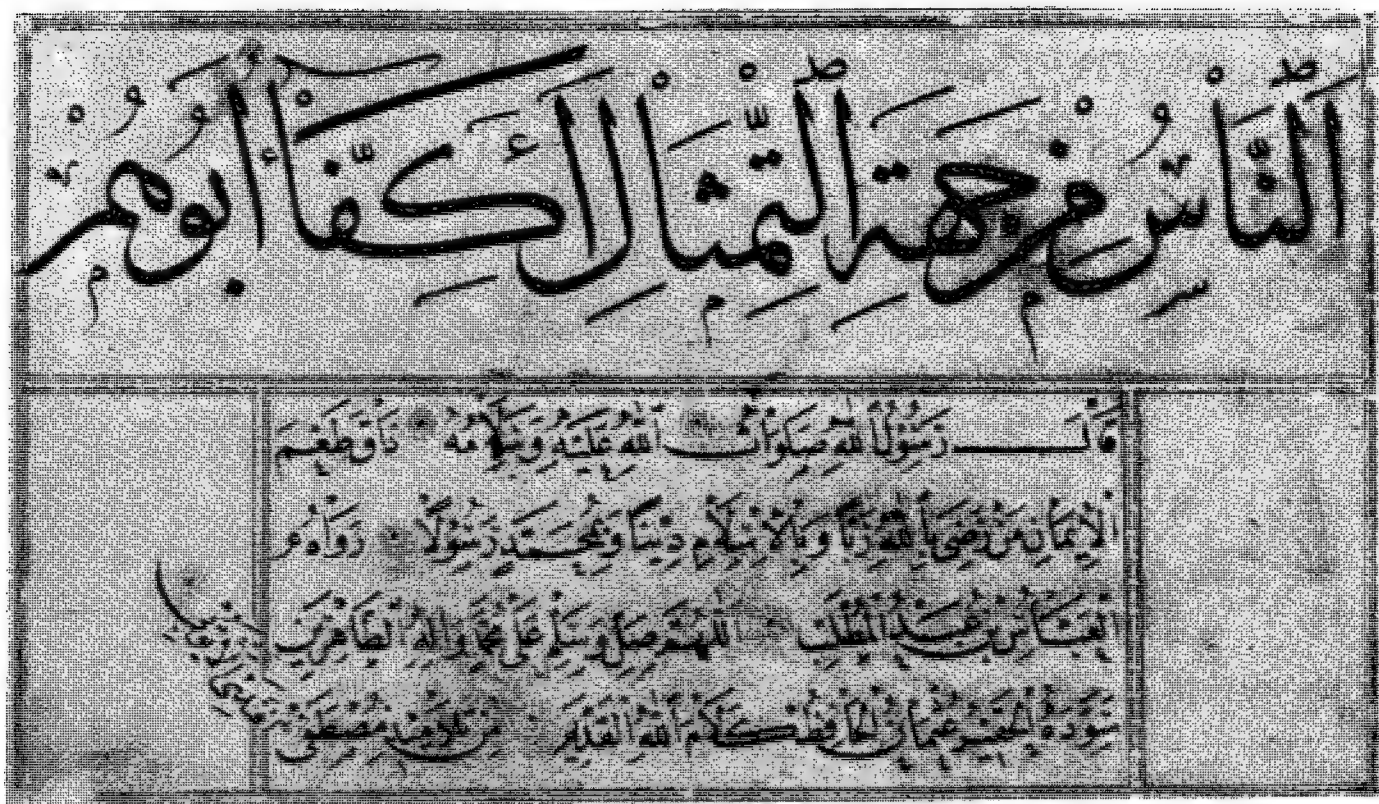 اَلنَّاسُ مِنْ جِهَةِ الْتِّمْثَالِ اَكِفَّاءُ اَبُوهُمْ
قَالَ رَسُولُ اللهِ صَلَوَاتُ اللهِ عَلَيْهِ وَسَلَامُهُ ذَاقَ طَعْمَ
الْاِيمَانِ مَنْ رَضِيَ بِاللهِ رَبًّا وَبِالْاِسْلَامِ دِينًا وَبِمُحَمَّدٍ رَسُولًا رَوَاهُ
الْعَبَّاسُ بْنُ عَبْدِ الْمُطَّلِبِ اَللّٰهُمَّ صَلِّ وَسَلِّمْ عَلَى مُحَمَّدٍ وَاٰلِهِ الطَّاهِرِينَ
سَوَّدَهُ الْحَقِيرُ عُثْمَانُ الْحَافِظُ كَلَامَ اللهِ الْقَدِيمِ مِنْ تَلَامِيذِ مُصْطَفَى
الْاَيُّوبِيِّ